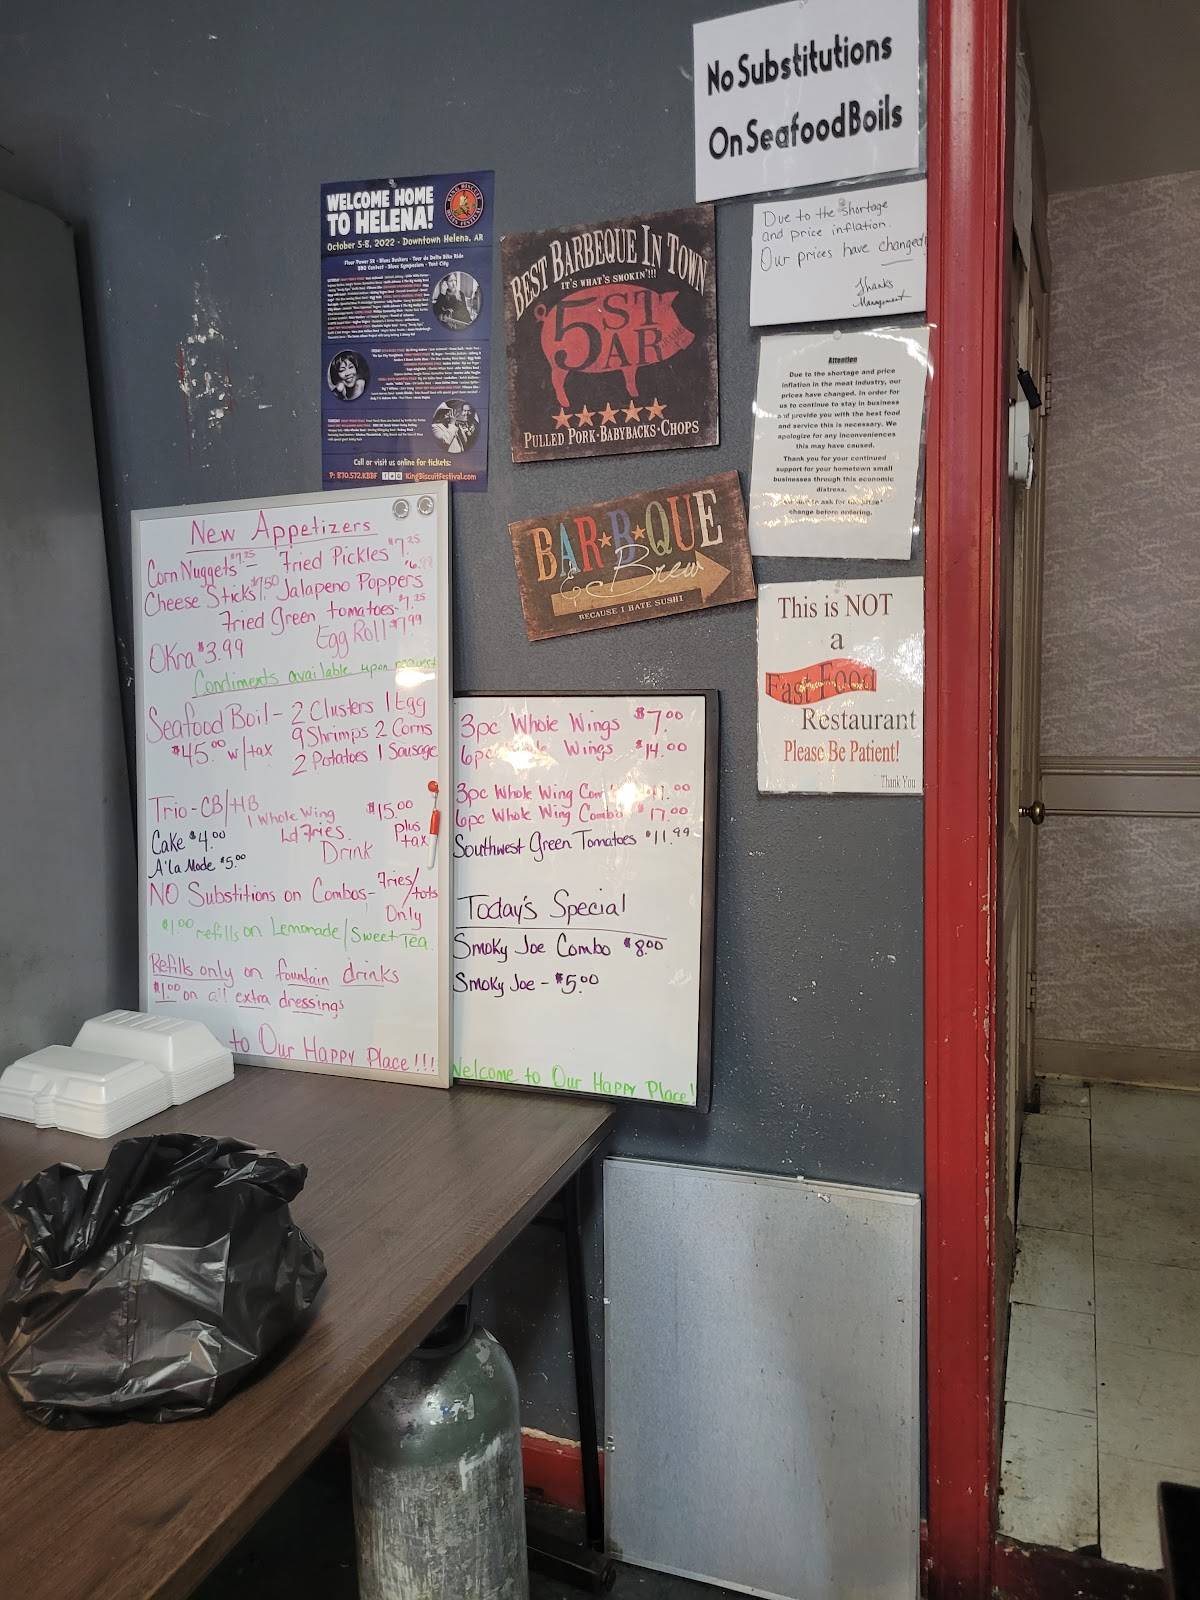 No Substitutions
On Seafood Boils
Due to the shortage
and price inflation.
Our prices have changed!
Thanks
Management
Attention
Due to the shortage and price
inflation in the meat industry, our
prices have changed. In order for
us to continue to stay in business
and provide you with the best food
and service this is necessary. We
apologize for any inconveniences
this may have caused.
Thank you for your continued
support for your hometown small
businesses through this economic
distress.
to ask for
change before ordering.
This is NOT
a
Fast Food
Restaurant
Please Be Patient!
Thank You
WELCOME HOME
TO HELENA!
KING BISCUIT
BLUES FESTIVAL
October 5-8, 2022 - Downtown Helena, AR
Flour Power 5K - Blues Buskers - Tour da Delta Bike Ride
BBQ Contest - Blues Symposium - Tent City
Call or visit us online for tickets:
P: 870.572.KBBF KingBiscuitFestival.com
BEST BARBEQUE IN TOWN
IT'S WHAT'S SMOKIN'!!!
5 STAR
PULLED PORK · BABYBACKS · CHOPS
BAR★B★QUE
& Brew
BECAUSE I HATE SUSHI
New Appetizers
Corn Nuggets $7.25 - Fried Pickles $7.25
Cheese Sticks $7.50 Jalapeno Poppers
Fried Green tomatoes - $7.25
Okra $3.99 Egg Roll $7.99
Condiments available upon request
Seafood Boil - 2 Clusters 1 Egg
$45.00 w/tax 9 Shrimps 2 Corns
2 Potatoes 1 Sausage
Trio - CB/HB $15.00
1 Whole Wing plus
Ld Fries tax
Drink
Cake $4.00
A'la Mode $5.00
NO Substitions on Combos - Fries/tots
Only
$1.00 refills on Lemonade/Sweet Tea.
Refills only on fountain drinks
$1.00 on all extra dressings
to Our Happy Place!!!
3pc Whole Wings $7.00
6pc Wings $14.00
3pc Whole Wing .00
6pc Whole Wing Combo $17.00
Southwest Green Tomatoes $11.99
Today's Special
Smoky Joe Combo $8.00
Smoky Joe - $5.00
Welcome to Our Happy Place!